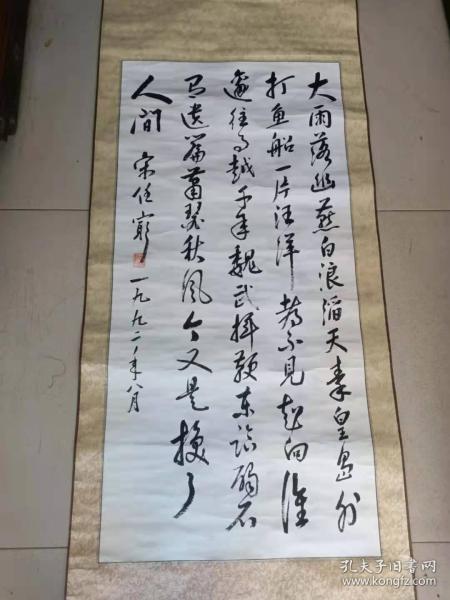 大雨落幽燕白浪滔天秦皇岛外
打鱼船一片汪洋都不见知向谁
边往事越千年魏武挥鞭东临碣石
有遗篇萧瑟秋风今又是换了
人间 宋任穷
一九九二年八月
孔夫子旧书网
www.kongfz.com